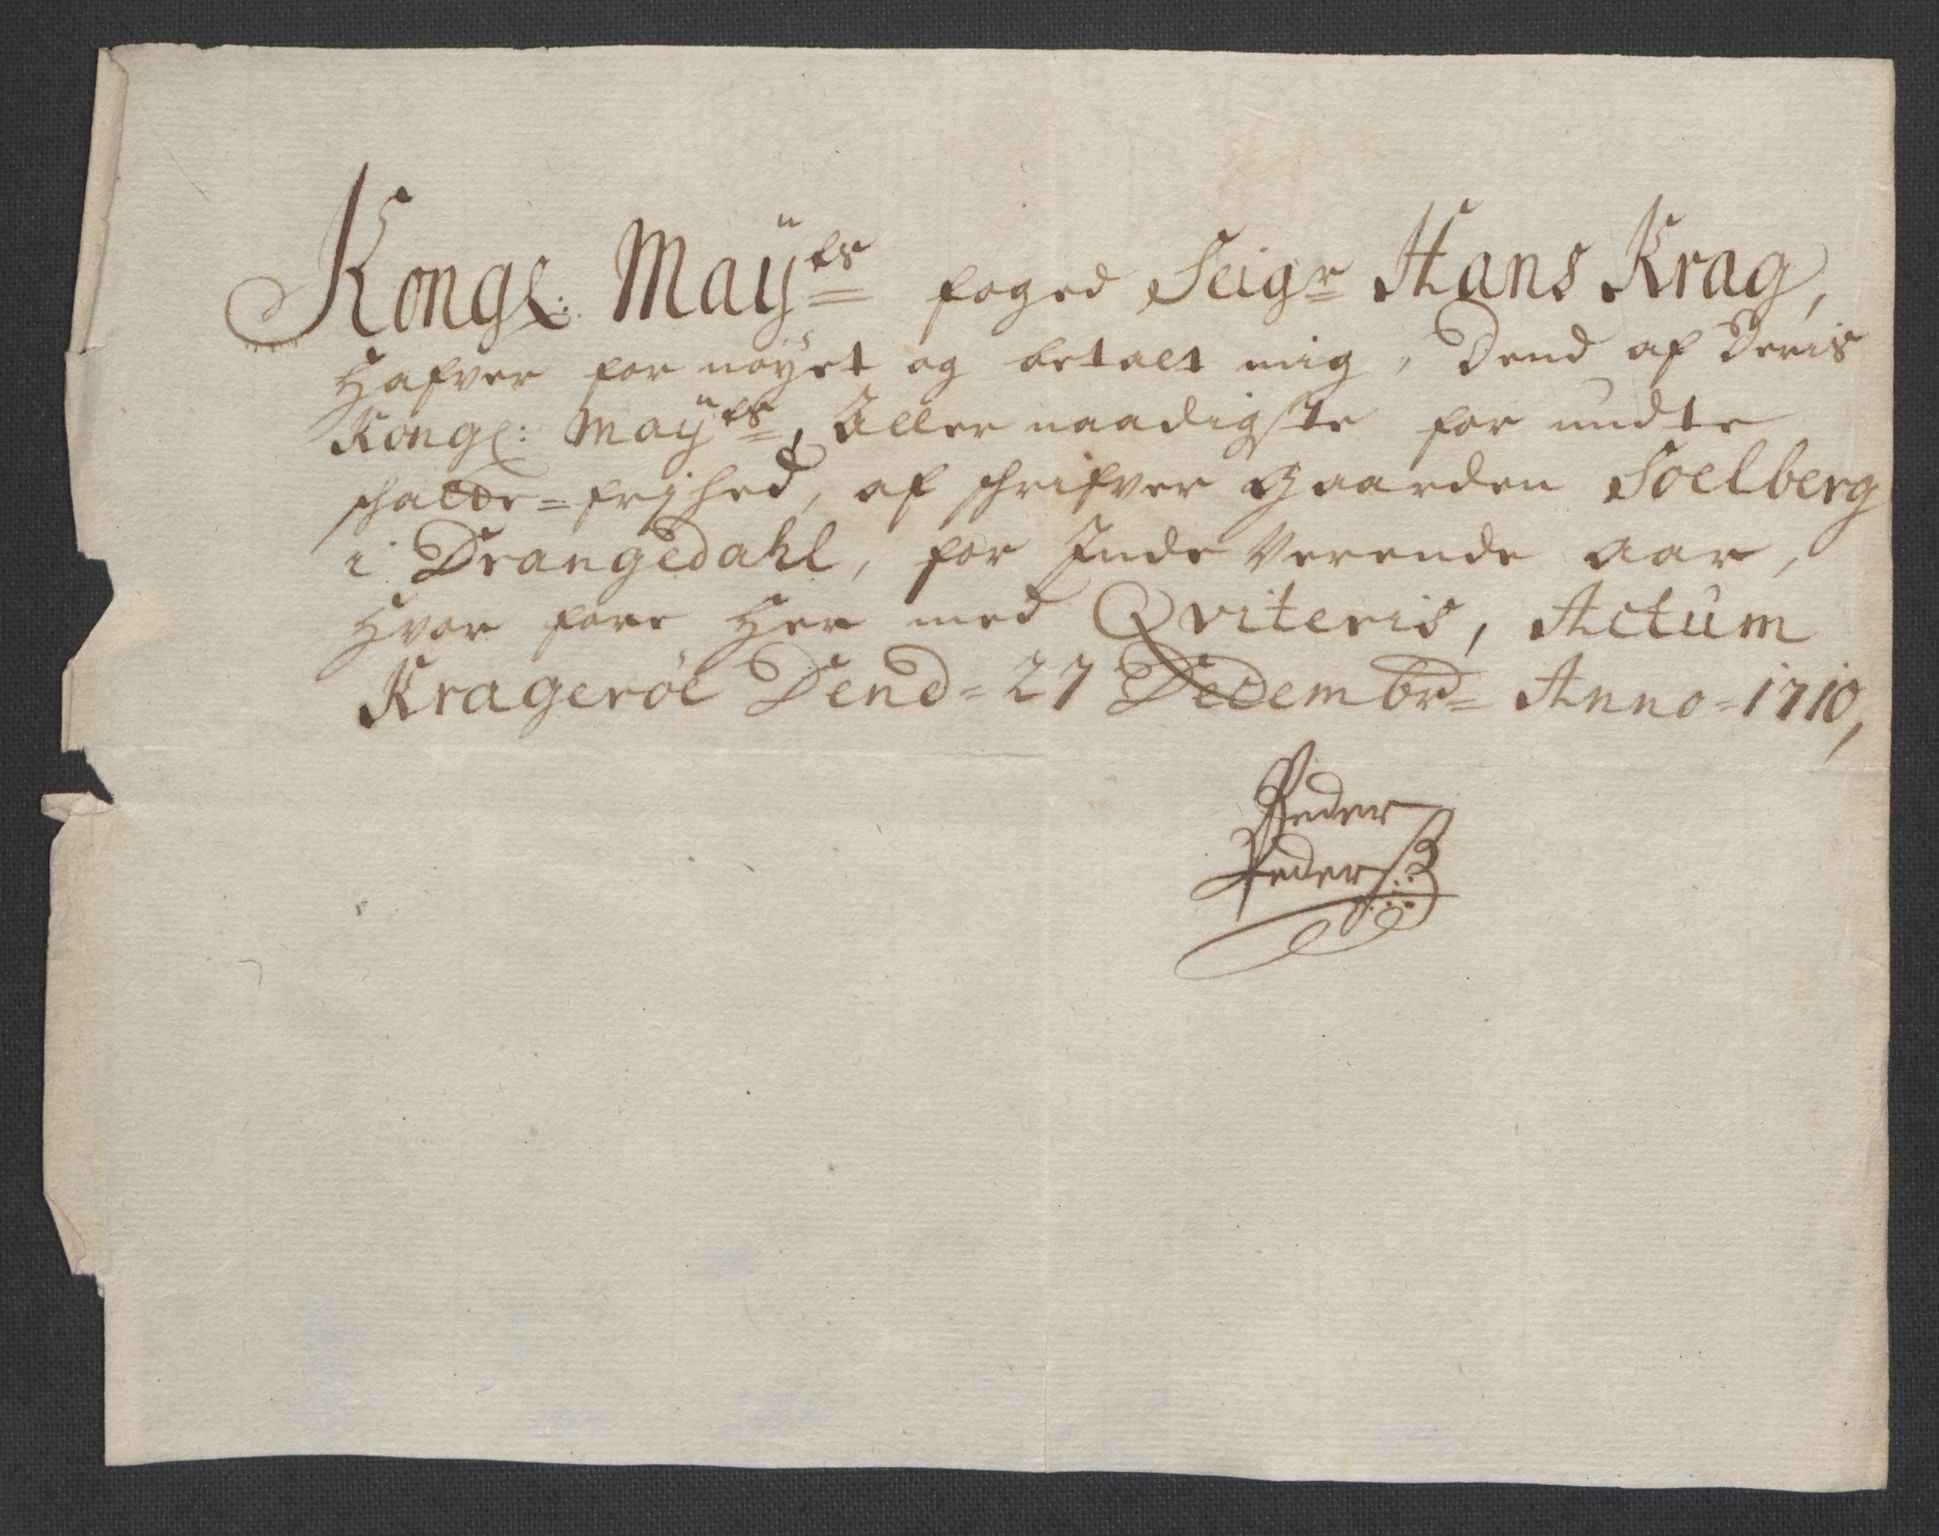 Kongl: Maÿts foged Seigr Hans Krag,
Hafver for nøyet og betalt mig, Dend af Deris
Kongl: Maÿts, Aller naadigste for undte
schatte=frjhed, af schrifver gaarden Soelberg
i Drangedahl, for Inde Verende aar,
Hvor fore Her med Qviteris, Actum
Kragerøe Dend= 27 Decembr= Anno=1710,
Peder
Pederß